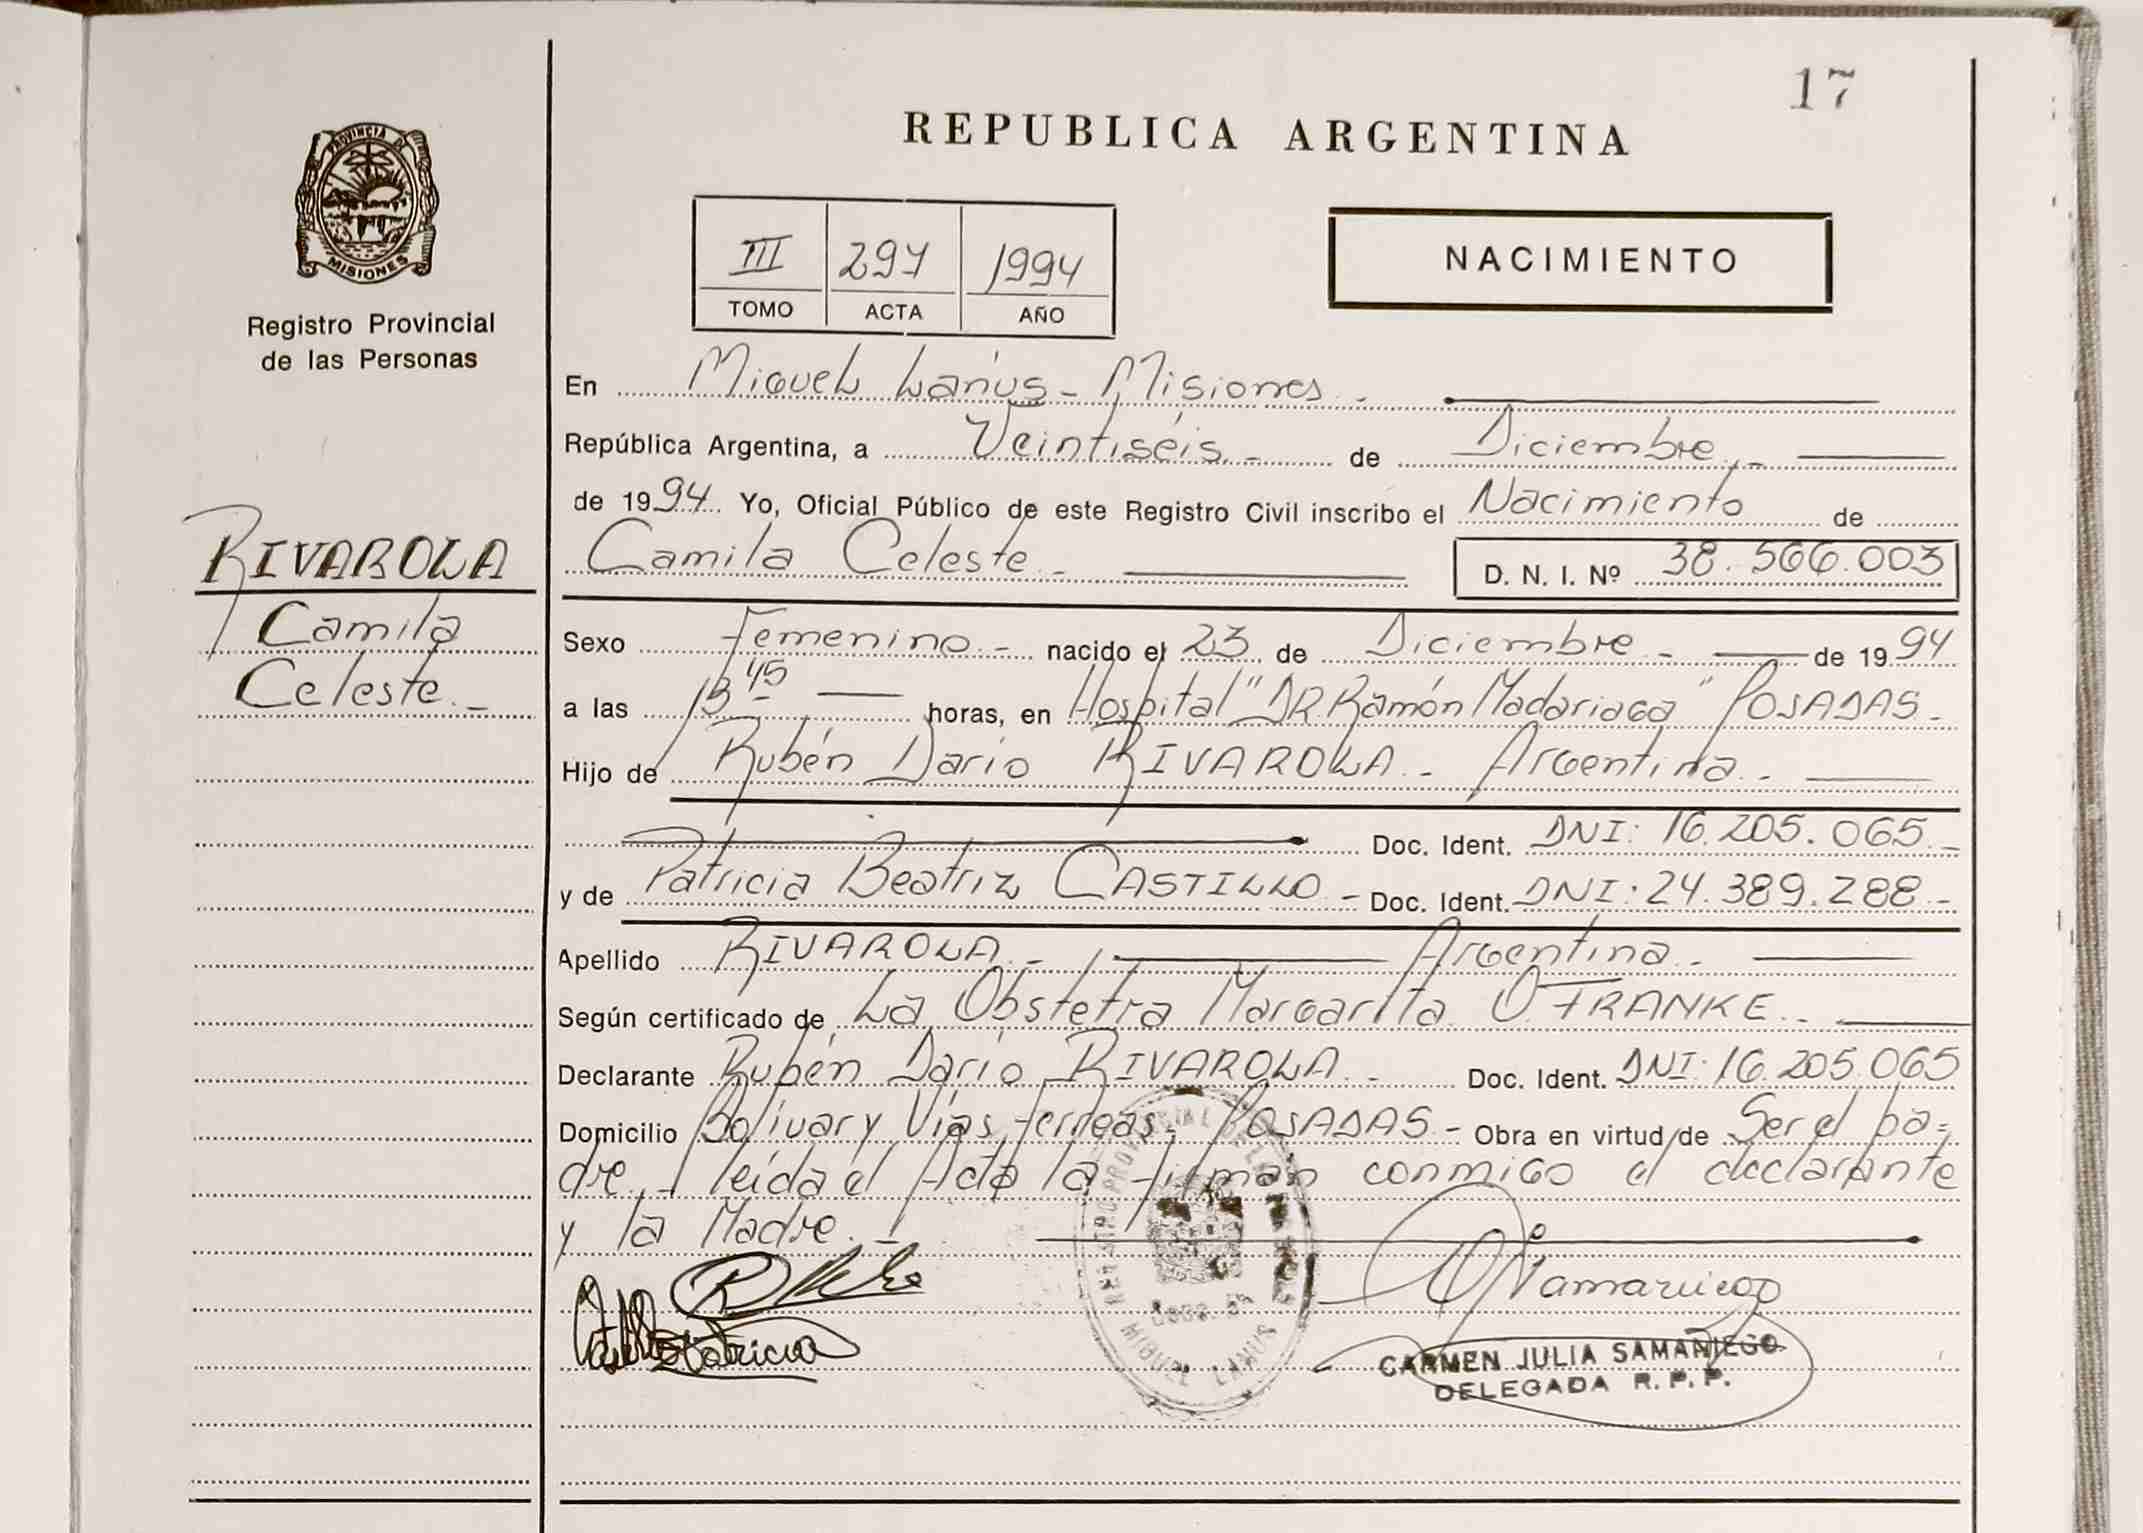 17
REPUBLICA ARGENTINA
PROVINCIA DE
MISIONES
Registro Provincial
de las Personas
III 297 1994
TOMO ACTA AÑO
NACIMIENTO
En Miguel Lanús - Misiones -
República Argentina, a Veintiséis - de Diciembre -
de 1994 Yo, Oficial Público de este Registro Civil inscribo el Nacimiento de
Camila Celeste - D. N. I. Nº 38.566.003
RIVAROLA
Camila
Celeste -
Sexo Femenino - nacido el 23 de Diciembre - de 1994
a las 13 45 horas, en Hospital "DR Ramón Madariaga" POSADAS -
Hijo de Rubén Darío RIVAROLA - Argentina -
Doc. Ident. DNI: 16.205.065 -
y de Patricia Beatriz CASTILLO - Doc. Ident. DNI: 24.389.288 -
Apellido RIVAROLA - Argentina -
Según certificado de La Obstetra Margarita O. FRANKE -
Declarante Rubén Darío RIVAROLA - Doc. Ident. DNI: 16.205.065
Domicilio Bolívar y Vías Ferreas - POSADAS - Obra en virtud de Ser el pa-
dre - leída el Acta la firman conmigo el declarante
y la Madre. -
Patricia
MIGUEL LANUS
CARMEN JULIA SAMANIEGO
DELEGADA R. P. P.